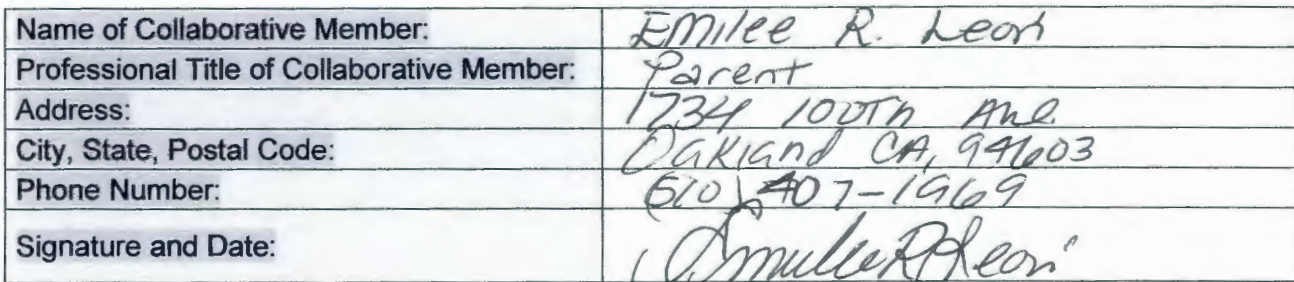 Name of Collaborative Member: Emilee R. Leon
Professional Title of Collaborative Member: Parent
Address: 1734 100Th Ave.
City, State, Postal Code: Oakland CA, 94603
Phone Number: (510) 407-1969
Signature and Date: Emilee R Leon